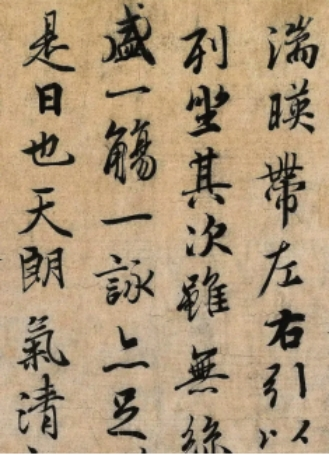 湍暎帶左右引以
列坐其次雖無絲
盛一觴一詠亦足
是日也天朗氣清